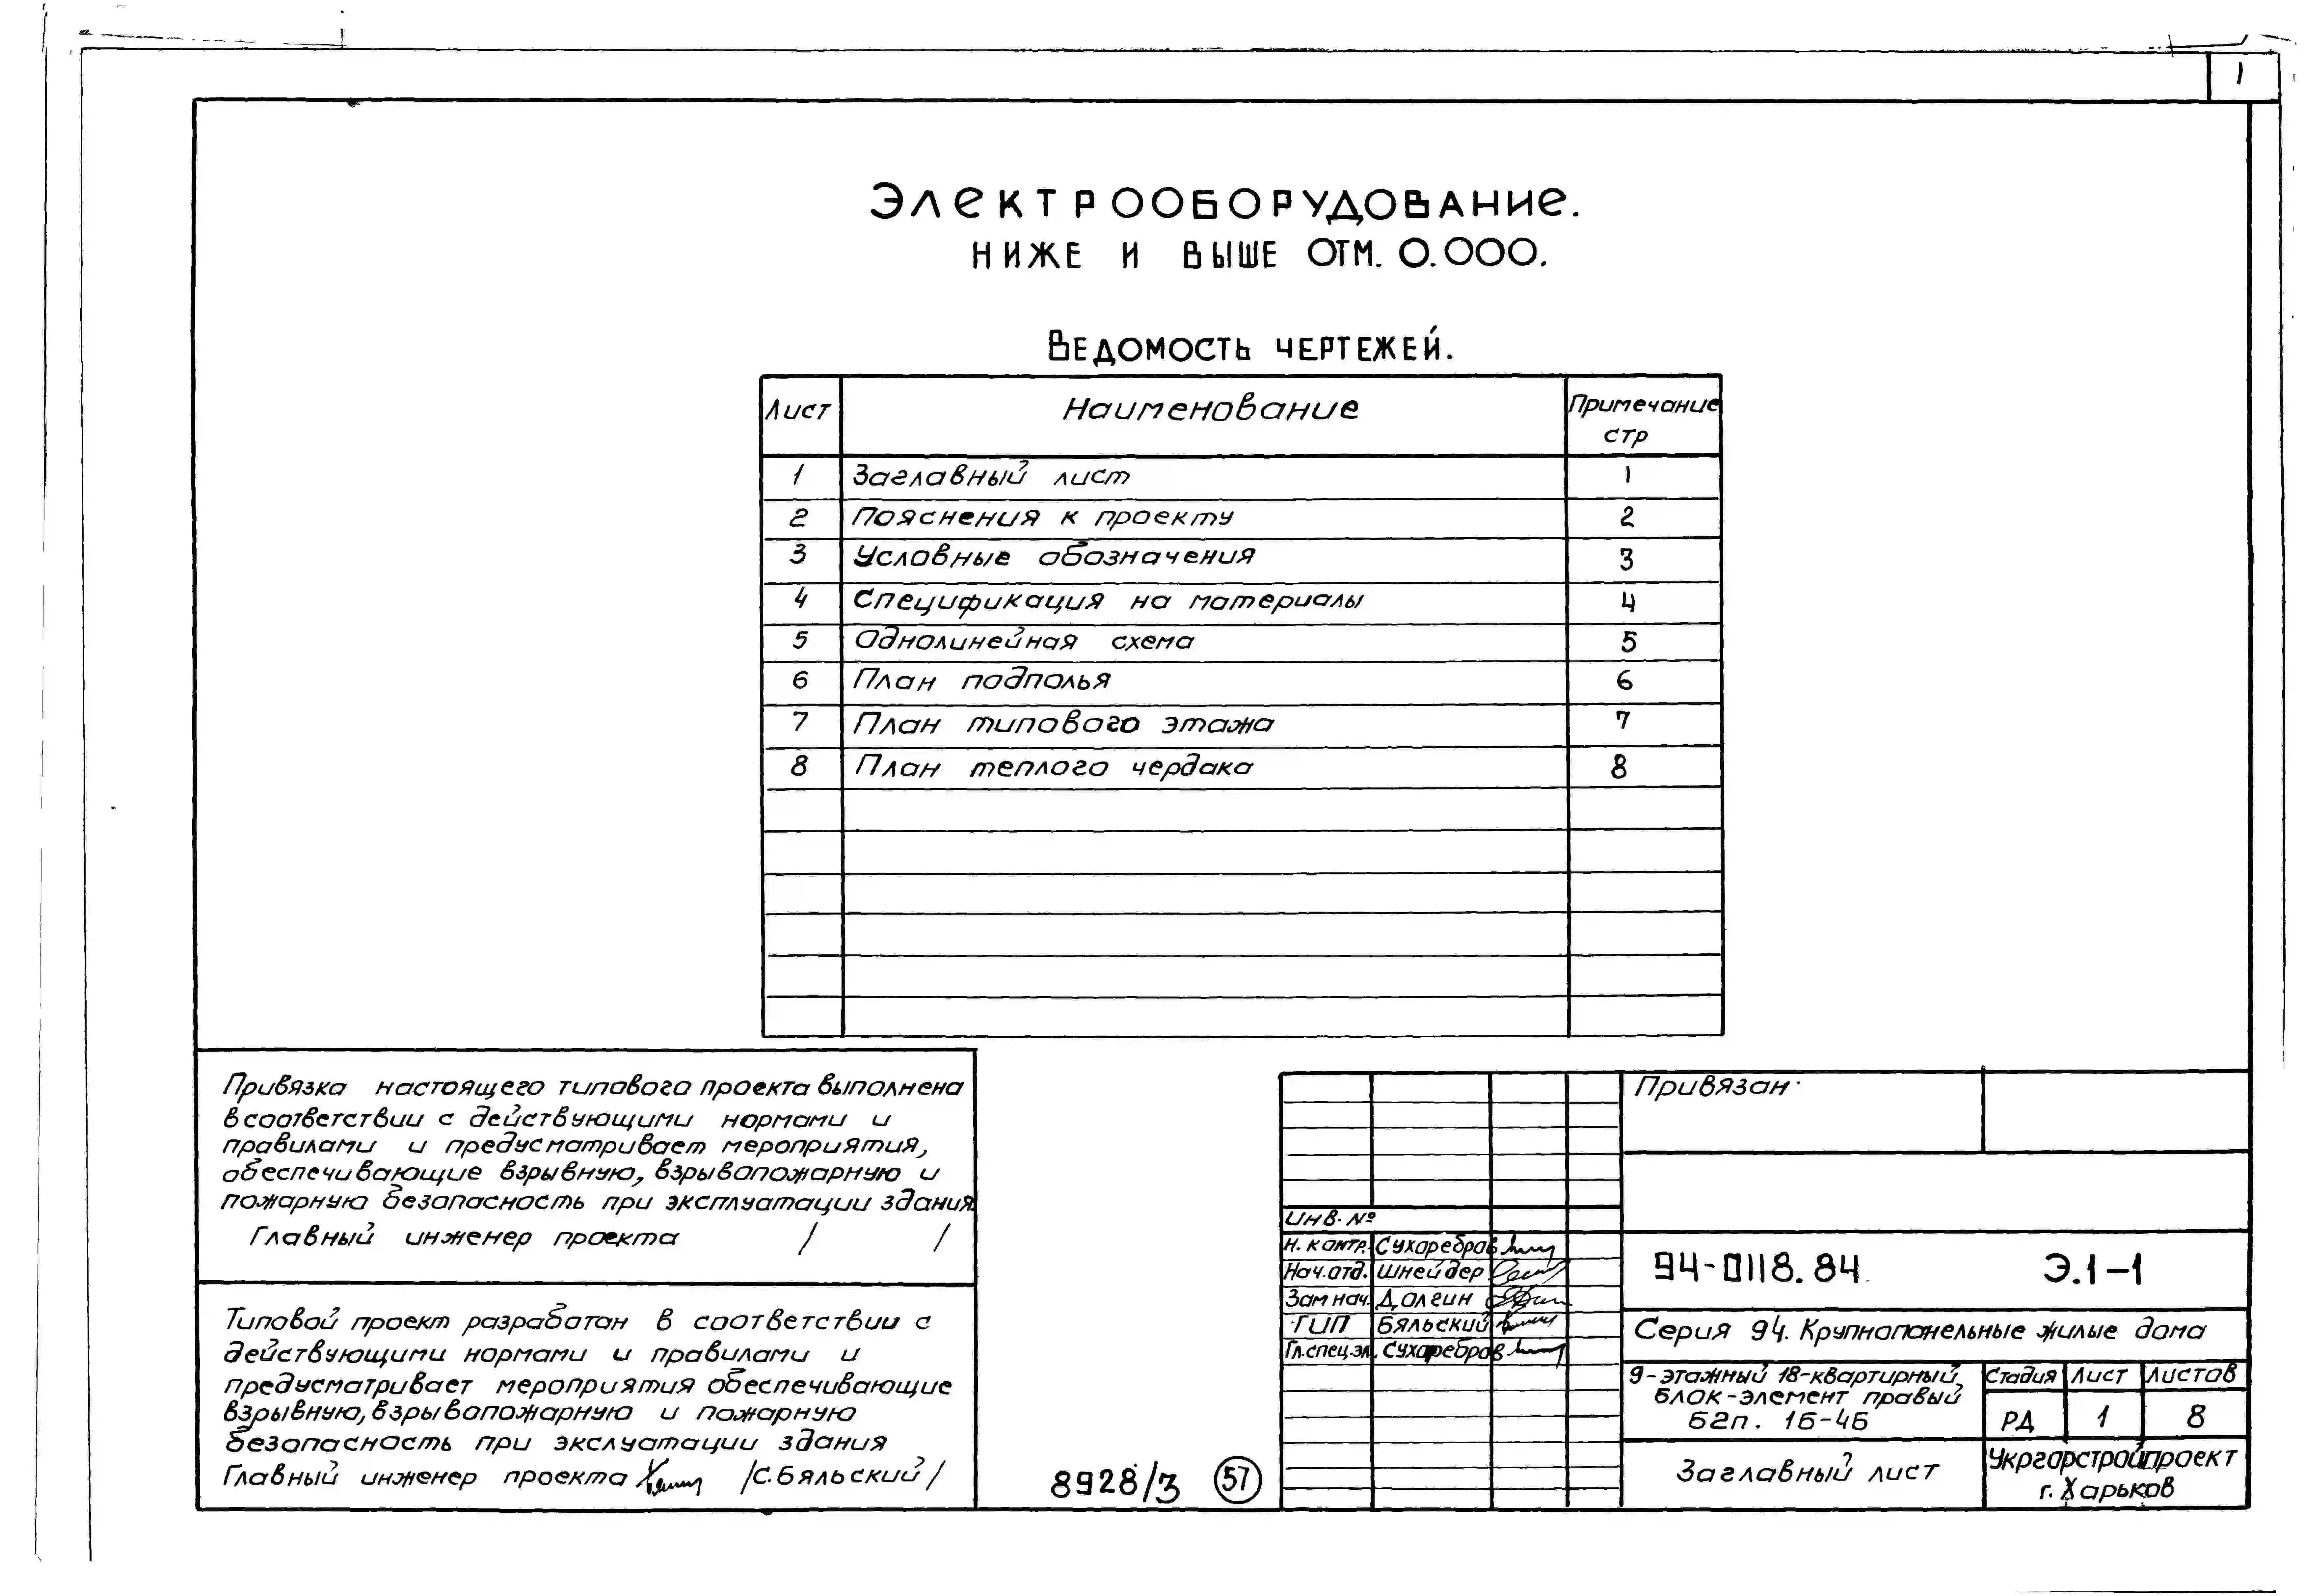 1
Электрооборудование.
ниже и выше отм. 0.000.
Ведомость чертежей.
Лист Наименование Примечание стр
1 Заглавный лист 1
2 Пояснения к проекту 2
3 Условные обозначения 3
4 Спецификация на материалы 4
5 Однолинейная схема 5
6 План подполья 6
7 План типового этажа 7
8 План теплого чердака 8
Привязка настоящего типового проекта выполнена
в соответствии с действующими нормами и
правилами и предусматривает мероприятия,
обеспечивающие взрывную, взрывопожарную и
пожарную безопасность при эксплуатации здания.
Главный инженер проекта / /
Типовой проект разработан в соответствии с
действующими нормами и правилами и
предусматривает мероприятия обеспечивающие
взрывную, взрывопожарную и пожарную
безопасность при экслуатации здания
Главный инженер проекта /С.Бяльский/
8928/3 57
Привязан
Инв. №
Н. контр. Сухаребров
Нач. отд. Шнейдер
Зам нач. Долгин
ГИП Бяльский
Гл.спец.эл. Сухаребров
94-0118.84 Э.1-1
Серия 94. Крупнопанельные жилые дома
9-этажный 18-квартирный
блок-элемент правый
Б2п. 1Б-4Б
Стадия Лист Листов
РД 1 8
Заглавный лист
Укргорстройпроект
г. Харьков